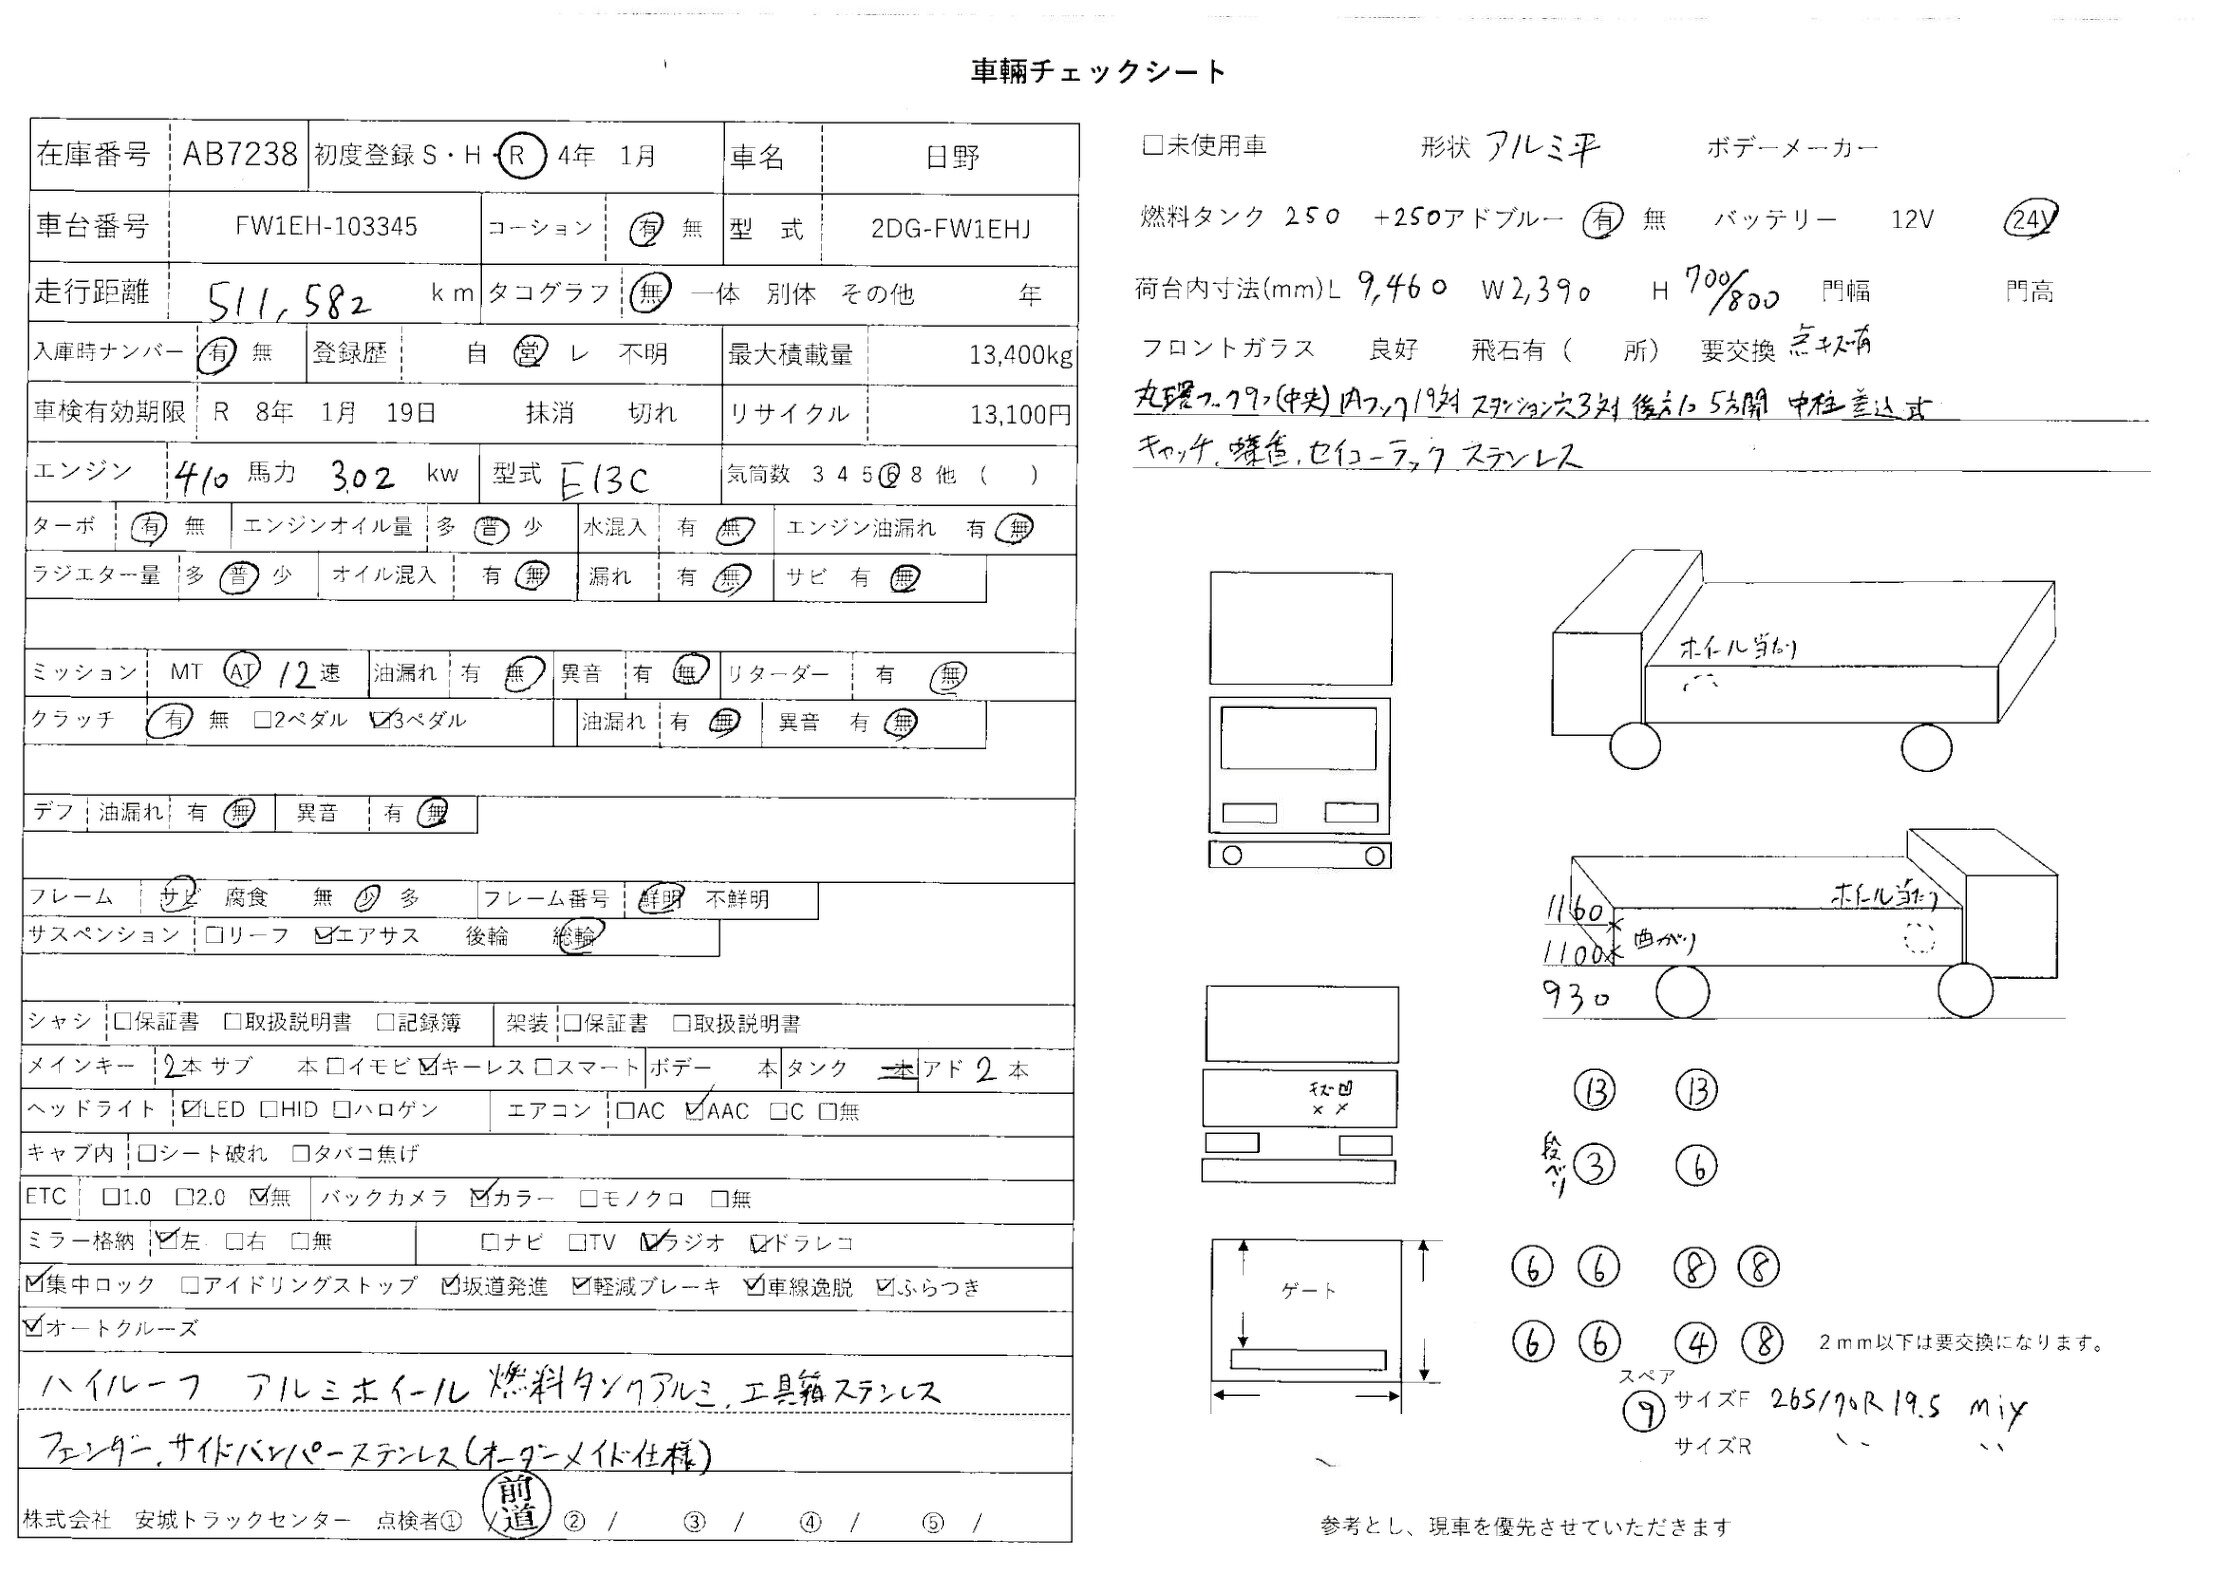 車輛チェックシート
在庫番号 AB7238 初度登録 S・H・R 4年 1月 車名 日野
車台番号 FW1EH-103345 コーション 有 無 型 式 2DG-FW1EHJ
走行距離 511,582 km タコグラフ 無 一体 別体 その他 年
入庫時ナンバー 有 無 登録歴 自 営 レ 不明 最大積載量 13,400kg
車検有効期限 R 8年 1月 19日 抹消 切れ リサイクル 13,100円
エンジン 410 馬力 302 kw 型式 E13C 気筒数 3 4 5 6 8 他 ( )
ターボ 有 無 エンジンオイル量 多 普 少 水混入 有 無 エンジン油漏れ 有 無
ラジエター量 多 普 少 オイル混入 有 無 漏れ 有 無 サビ 有 無
ミッション MT AT 12速 油漏れ 有 無 異音 有 無 リターダー 有 無
クラッチ 有 無 □2ペダル ☑3ペダル 油漏れ 有 無 異音 有 無
デフ 油漏れ 有 無 異音 有 無
フレーム サビ 腐食 無 少 多 フレーム番号 鮮明 不鮮明
サスペンション □リーフ ☑エアサス 後輪 総輪
シャシ □保証書 □取扱説明書 □記録簿 架装 □保証書 □取扱説明書
メインキー 2本 サブ 本 □イモビ ☑キーレス □スマート ボデー 本 タンク 本 アド 2 本
ヘッドライト ☑LED □HID □ハロゲン エアコン □AC ☑AAC □C □無
キャブ内 □シート破れ □タバコ焦げ
ETC □1.0 □2.0 ☑無 バックカメラ ☑カラー □モノクロ □無
ミラー格納 ☑左 □右 □無 □ナビ □TV ☑ラジオ ☑ドラレコ
☑集中ロック □アイドリングストップ ☑坂道発進 ☑軽減ブレーキ ☑車線逸脱 ☑ふらつき
☑オートクルーズ
ハイルーフ アルミホイール 燃料タンクアルミ、工具箱ステンレス
フェンダー、サイドバンパーステンレス(オーダーメイド仕様)
株式会社 安城トラックセンター 点検者① / 前道 ② / ③ / ④ / ⑤ /
□未使用車 形状 アルミ平 ボデーメーカー
燃料タンク 250 +250アドブルー 有 無 バッテリー 12V 24V
荷台内寸法(mm)L 9,460 W2,390 H 700/800 門幅 門高
フロントガラス 良好 飛石有( 所) 要交換 点キズ有
(中央) 内フック19対 スタンション穴3対 5方開 中柱差込式
キャッチ、蝶番、セイコーラック ステンレス
ホイール当たり
ホイール当たり
1160
曲がり
1100
930
キズ凹
× ×
13 13
段べり 3 6
6 6 8 8
ゲート
6 6 4 8 2mm以下は要交換になります。
スペア
9 サイズF 265/70R19.5 mix
サイズR 〃 〃
参考とし、現車を優先させていただきます